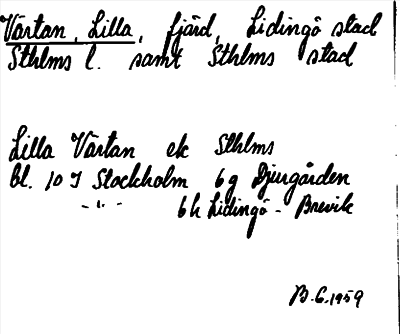 Värtan, Lilla, fjärd, Lidingö stad
Sthlms l. samt Sthlms stad
Lilla Värtan ek Sthlms
bl. 10 I Stockholm 6 g Djurgården
-"- 6 h Lidingö - Brevik
B.G. 1959